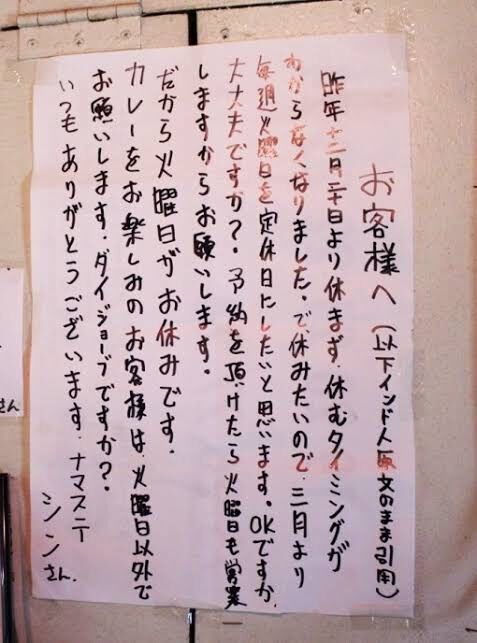 お客様へ(以下インド人原文のまま引用)
昨年十二月二十日より休まず、休むタイミングが
わからなくなりました。で、休みたいので、三月より
毎週火曜日を定休日にしたいと思います。OKですか
大丈夫ですか?.予約を頂けたら火曜日も営業
しますからお願いします。
だから火曜日がお休みです.
カレーをお楽しみのお客様は、火曜日以外で
お願いします.ダイジョーブですか?
いつもありがとうございます.ナマステ
シンさん.
さん